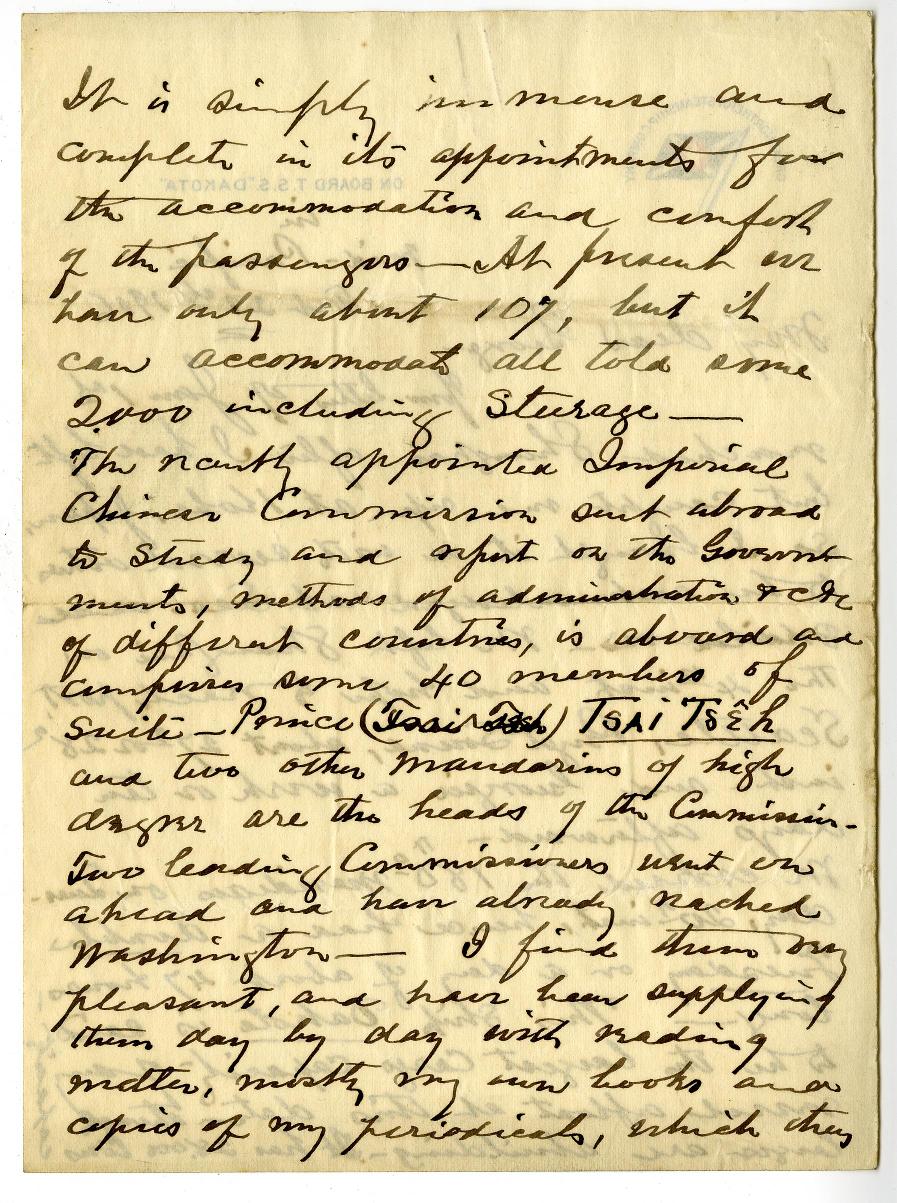 It is simply immense and
complete in its appointments for
the accommodation and comfort
of the passengers — At present we
have only about 107, but it
can accommodate all told some
2.000 including Steerage —
The recently appointed Imperial
Chinese Commission sent abroad
to study and report on the Govern-
ments, methods of administration & etc
of different countries, is aboard and
comprises some 40 members of
suite — Prince (Tsai Tseh) TSAI TSÊh
and two other Mandarins of high
degree are the heads of the Commission-
Two leading Commissioners went on
ahead and have already reached
Washington — I find them very
pleasant, and have been supplying
them day by day with reading
matter, mostly my own books and
copies of my periodicals, which they
ON BOARD T.S.S. "DAKOTA"